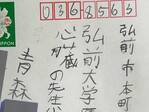 NIPPON
0368563
弘前市本町
弘前大学
心臓
の先生
青森